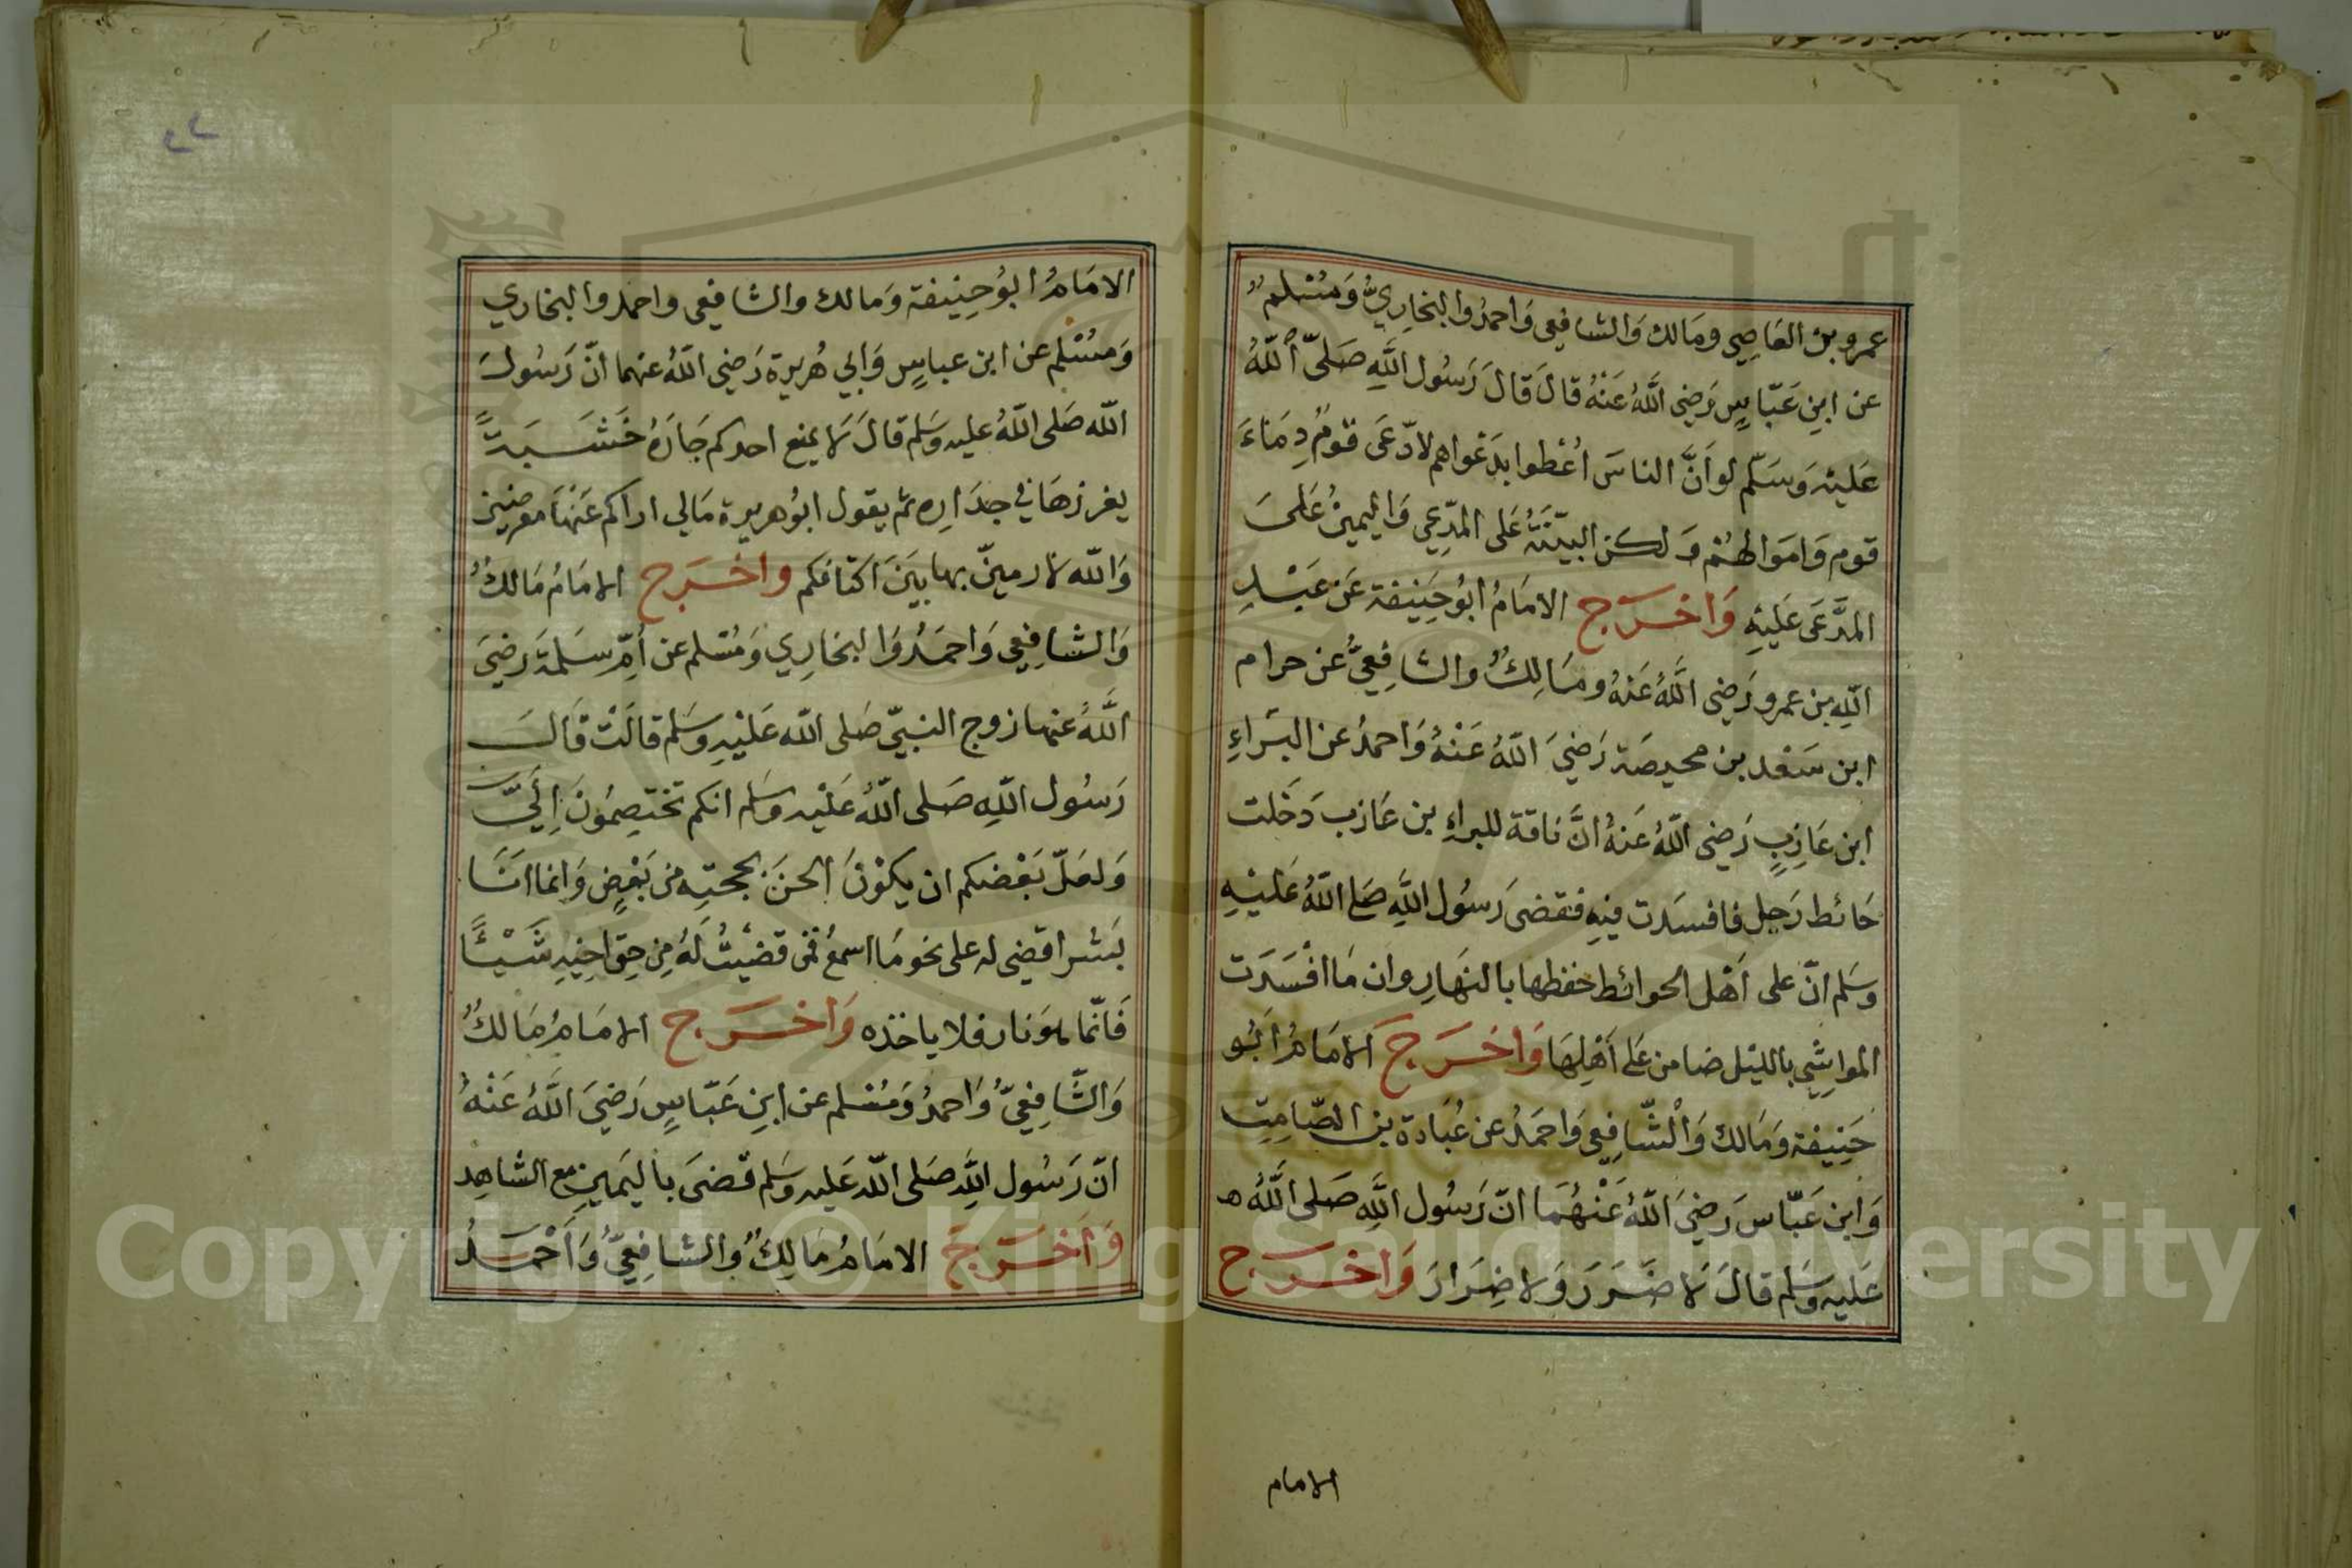 عمرو بن العَاصِي ومَالك وَالشافِعي وَاحمدُ والبخَارِيُّ وَمُسْلم
عن ابنِ عَبّاسٍ رَضِي اللَّهُ عَنْهُ قالَ قَالَ رَسُول اللَّهِ صَلىّ اللّهُ
عَليْهِ وَسَلّم لو اَنَّ الناسَ اُعْطوا بدَعْواهم لادّعَى قومٌ دِمَاءَ
قوم وَامَوالهُمْ وَلكن البيّنَةُ عَلى المدّعِي وَاليمينُ عَلىَ
المدَّعَى عَليْهِ وَاخرَج الامَامُ ابُو حَنِيفة عَن عَبْدِ
اللهِ بن عمرو رَضِي اللَّهُ عَنهُ ومَالِكٌ والشافِعيُّ عن حرام
ابن سَعْد بن محيصَة رَضِيَ اللّهُ عَنْهُ وَاحمدُ عن البَراءِ
ابن عَازِبٍ رَضِي اللّهُ عَنهُ انَّ ناقة للبراءِ بن عَازبَ دَخَلت
حَائط رَجل فافسَدت فيهِ فقضى رَسُول اللَّهِ صَلى اللّهُ عَليْهِ
وسَلم انّ على اَهْل الحوائط حفظها بالنهَارِ وان مَا افْسَدَت
المواشِي بالليْل ضامن عَلى اَهْلِهَا وَاخرَج الامَامُ اَبُو
حَنِيفة وَمَالك وَالشّافِعي وَاحمَدُ عن عُبَادة بن الصّامِتِ
وَابن عَبّاس رَضِيَ اللّهُ عَنْهُمَا انّ رَسُول اللَّهِ صَلى اللَّهُ ه
عَليه وسَلم قالَ لا ضَرَرَ وَلا ضِرَارَ وَاخرَج
الامام
الامَامُ ابُو حِنِيفة وَمالك والشافِعي واحمد والبخاري
وَمسْلم عن ابن عباسٍ وَابي هُريرة رَضِي اللّهُ عنهما انّ رَسُول
اللّه صَلى اللّهُ عليه وسَلم قالَ لا يمنع احدكم جَارَهُ خَشَبَةً
يغرزهَا في جدَاره ثم يقول ابُو هريرة مَالي اراكم عَنْهَا معرضين
وَاللّه لارمينّ بها بَينَ اكتافكم واخرَج الامَامُ مَالكٌ
وَالشافِعِي وَاحمَدُ وَالبخَارِي وَمُسْلم عن اُمّ سَلمَة رَضيَ
اللَّهُ عنها زوج النبيّ صَلى اللّه عَليْهِ وسَلم قالَتْ قَالَ
رَسُول اللَّهِ صَلى اللّهُ عَليْه وسَلم انكم تختَصِمُونَ إِلَيَّ
وَلعَلّ بَعْضكم ان يكوْنَ الحنَ بحجتِه من بَعْضٍ وَانما انَا
بَشر اقضِي له على نحو مَا اسمعُ فمن قضَيْتُ لَهُ مِن حَق اخِيهِ شَيْئًا
فَانّما هوَ نار فلا ياخذه وَاخرَج الامَامُ مَالكٌ
وَالشّافِعِيُّ وَاحمدُ وَمُسْلم عن ابنِ عَبّاسٍ رَضيَ اللَّهُ عَنْهُ
انّ رَسُول اللَّهِ صَلى اللّه عَليه وسَلم قضىَ باليَمينِ مع الشاهِد
وَاَخرَجَ الامَامُ مَالِكٌ والشافِعيُّ وَاَحْمَدُ
Copyright © King Saud University